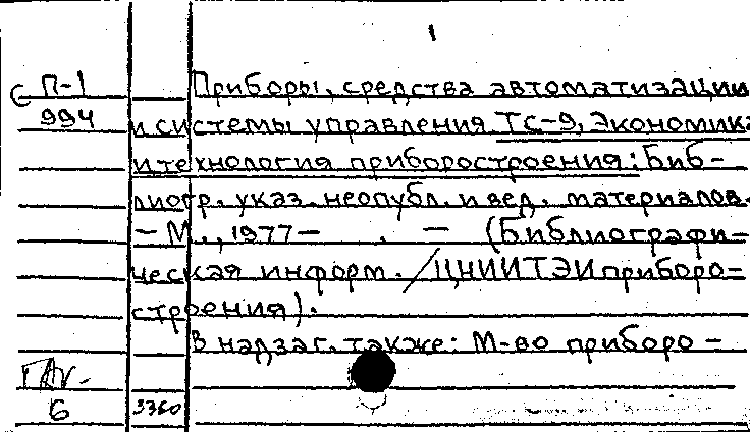 1
С П-1 Приборы, средства автоматизации
994 и системы управления. ТС-9, Экономика
и технология приборостроения: Биб-
лиогр. указ. неопубл. и вед. материалов.
— М., 1977— . — (Библиографи-
ческая информ. / ЦНИИТЭИ приборо-
строения).
В надзаг. также: М-во приборо-
6 3360